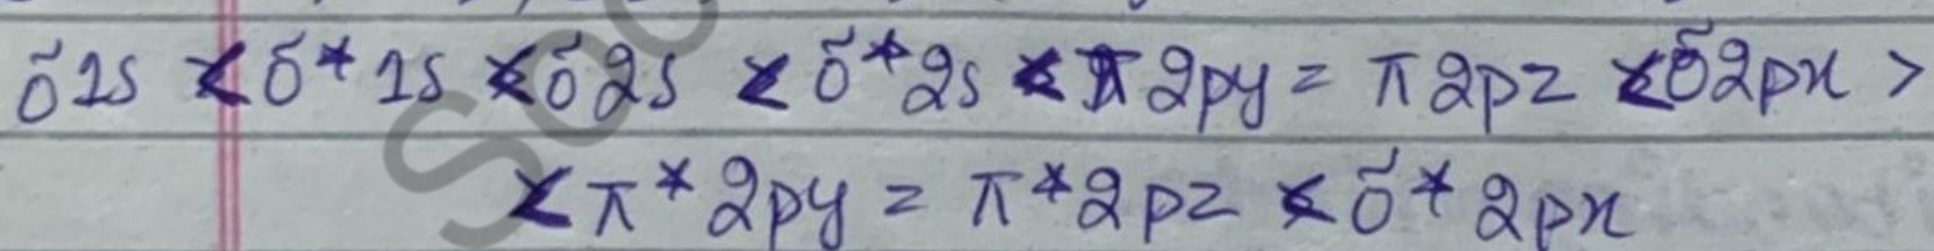 σ1s < σ*1s < σ2s < σ*2s < π2py = π2pz < σ2px >
< π*2py = π*2pz < σ*2px